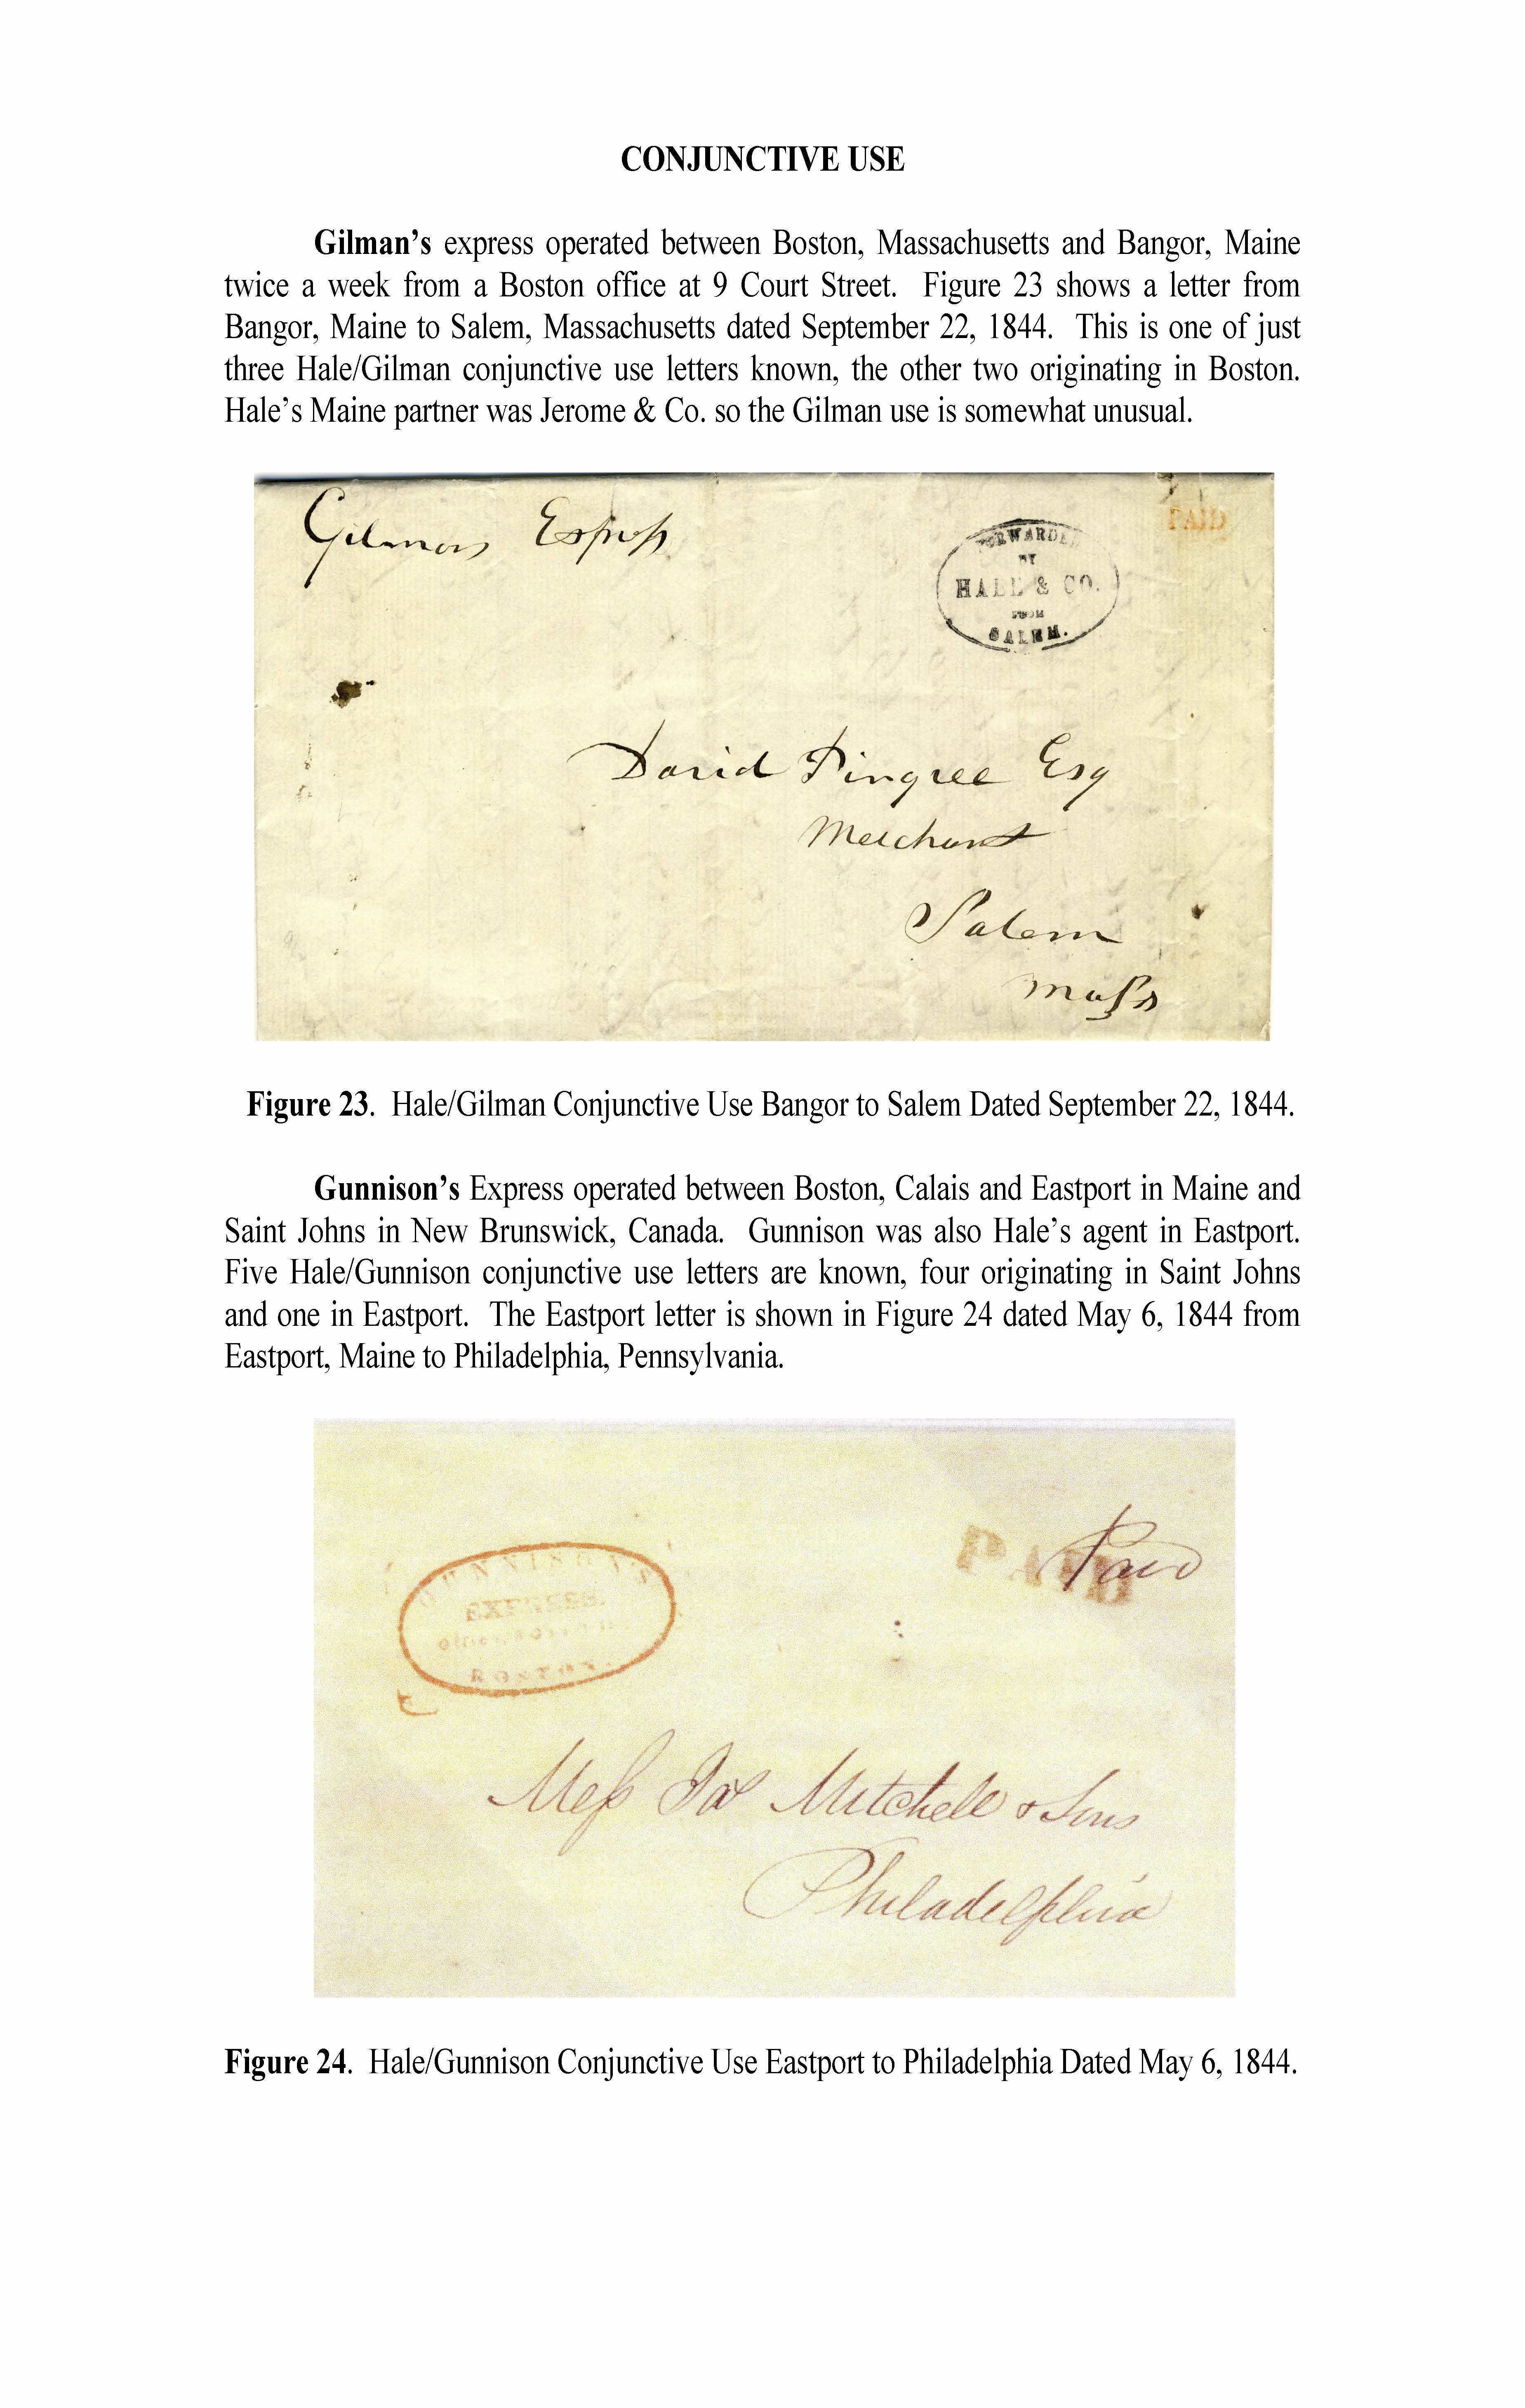 CONJUNCTIVE USE
Gilman’s express operated between Boston, Massachusetts and Bangor, Maine
twice a week from a Boston office at 9 Court Street. Figure 23 shows a letter from
Bangor, Maine to Salem, Massachusetts dated September 22, 1844. This is one of just
three Hale/Gilman conjunctive use letters known, the other two originating in Boston.
Hale’s Maine partner was Jerome & Co. so the Gilman use is somewhat unusual.
Gilmans Express
PAID
FORWARDED
BY
HALE & CO.
FROM
SALEM.
David Pingree Esq
Merchant
Salem
Mass
Figure 23. Hale/Gilman Conjunctive Use Bangor to Salem Dated September 22, 1844.
Gunnison’s Express operated between Boston, Calais and Eastport in Maine and
Saint Johns in New Brunswick, Canada. Gunnison was also Hale’s agent in Eastport.
Five Hale/Gunnison conjunctive use letters are known, four originating in Saint Johns
and one in Eastport. The Eastport letter is shown in Figure 24 dated May 6, 1844 from
Eastport, Maine to Philadelphia, Pennsylvania.
PAID
Paid
GUNNISON'S
EXPRESS.
BOSTON.
Mess Jas Mitchell & Sons
Philadelphia
Figure 24. Hale/Gunnison Conjunctive Use Eastport to Philadelphia Dated May 6, 1844.